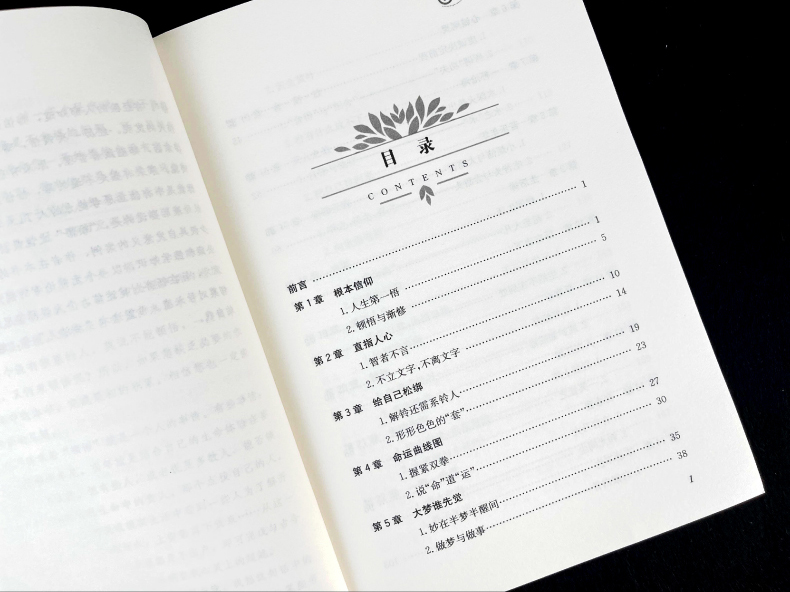 目 录
CONTENTS
前言 1
第1章 根本信仰
1. 人生第一悟 1
2. 顿悟与渐修 5
第2章 直指人心
1. 智者不言 10
2. 不立文字,不离文字 14
第3章 给自己松绑
1. 解铃还需系铃人 19
2. 形形色色的“套” 23
第4章 命运曲线图
1. 握紧双拳 27
2. 说“命”道“运” 30
第5章 大梦谁先觉
1. 妙在半梦半醒间 35
2. 做梦与做事 38
I